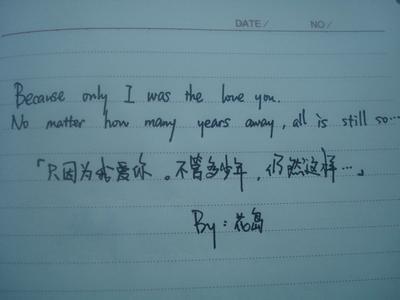 DATE / NO /
Because only I was the love you.
No matter how many years away, all is still so...
「只因为我爱你。不管多少年,仍然这样...」
By: 花岛